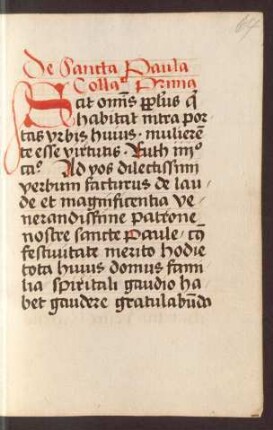 De Sancta Paula
Colla° Prima
Scit omĩs pplus q̃
habitat intra por
tas vrbis huius · mulierẽ
te esse virtutis · Ruth iijº
caº Ad vos dilectissimi
verbum facturus de lau
de et magnificentia ve
nerandissime patrone
nostre sancte Paule · cũ
festiuitate merito hodie
tota huius domus fami
lia spiritali gaudio ha
bet gaudere gratulabũdo